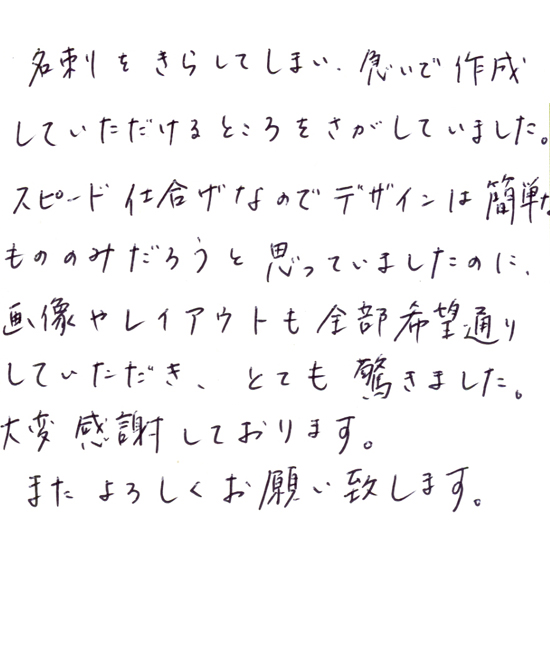 名刺をきらしてしまい、急いで作成
していただけるところをさがしていました。
スピード仕上げなのでデザインは簡単な
もののみだろうと思っていましたのに、
画像やレイアウトも全部希望通り
していただき、とても驚きました。
大変感謝しております。
またよろしくお願い致します。